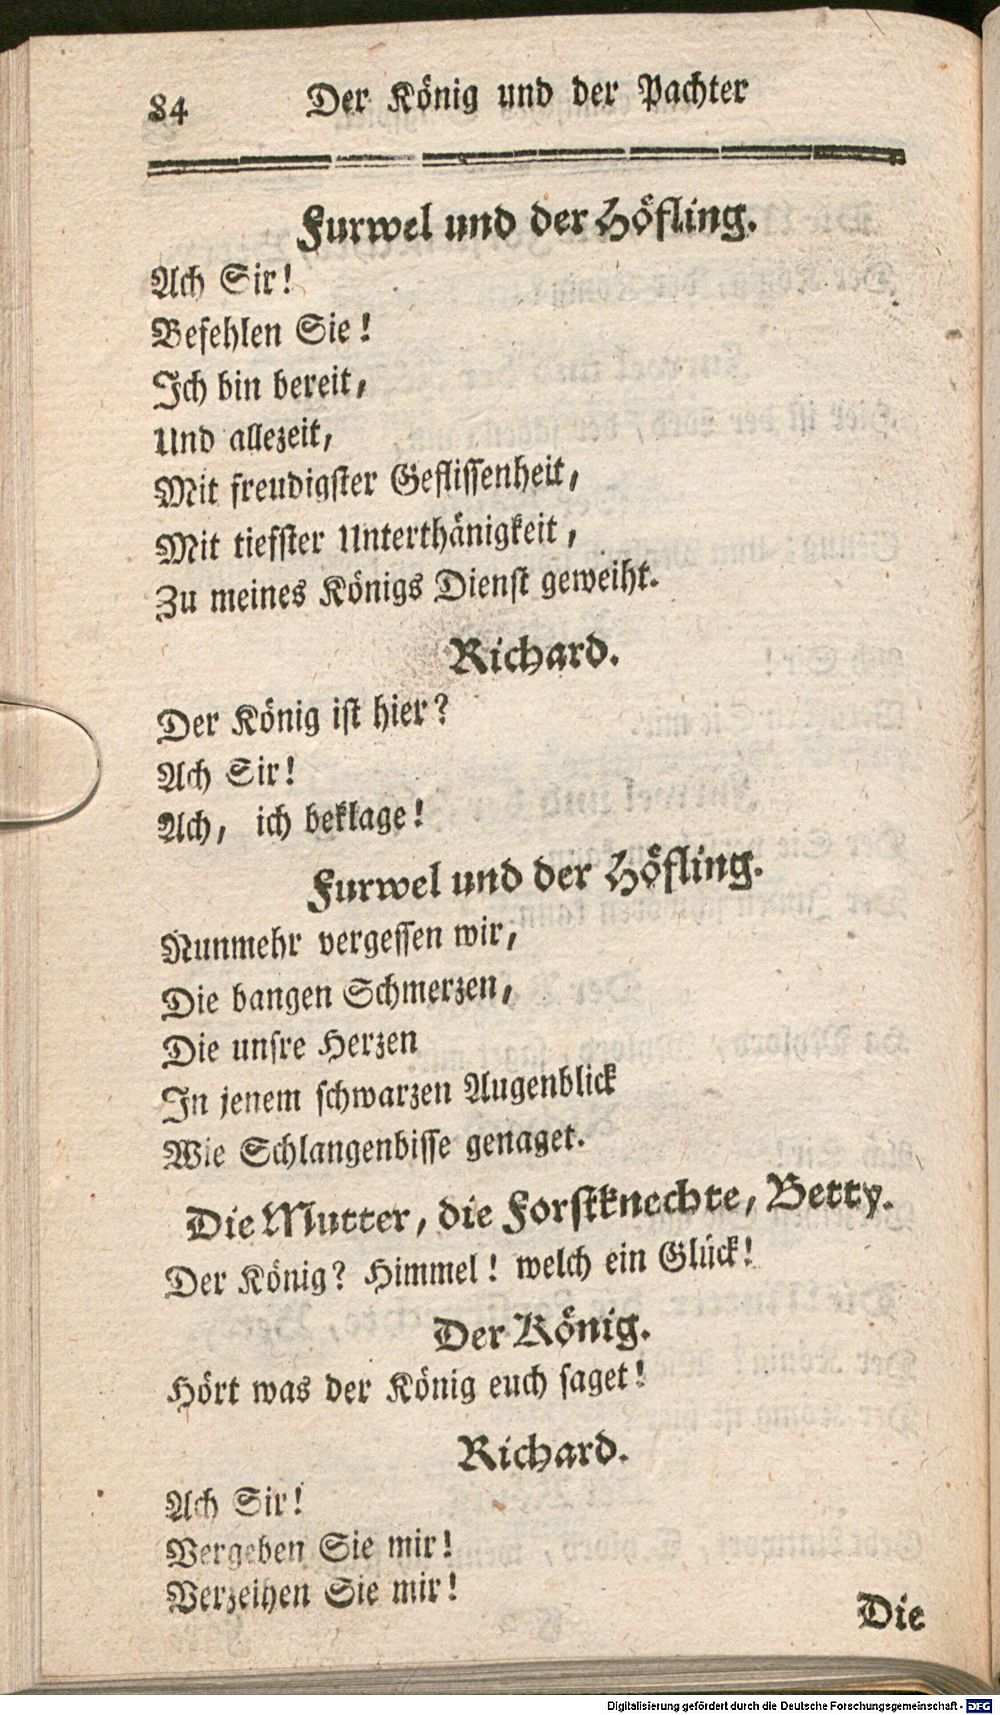 84 Der König und der Pachter
Furwel und der Höfling.
Ach Sir!
Befehlen Sie!
Ich bin bereit,
Und allezeit,
Mit freudigster Geflissenheit,
Mit tiefster Unterthänigkeit,
Zu meines Königs Dienst geweiht.
Richard.
Der König ist hier?
Ach Sir!
Ach, ich beklage!
Furwel und der Höfling.
Nunmehr vergessen wir,
Die bangen Schmerzen,
Die unsre Herzen
In jenem schwarzen Augenblick
Wie Schlangenbisse genaget.
Die Mutter, die Forstknechte, Betty.
Der König? Himmel! welch ein Glück!
Der König.
Hört was der König euch saget!
Richard.
Ach Sir!
Vergeben Sie mir!
Verzeihen Sie mir!
Die
Digitalisierung gefördert durch die Deutsche Forschungsgemeinschaft - DFG